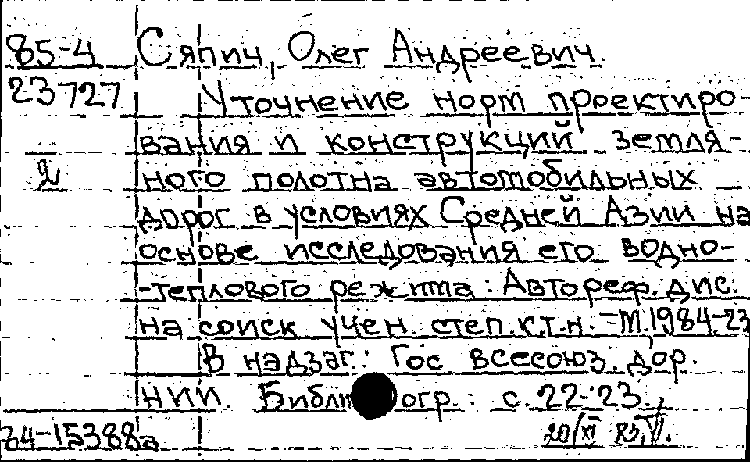 85-4 Сяпич, Олег Андреевич.
23727 Уточнение норм проектиро-
вания и конструкций земля-
2 ного полотна автомобильных
дорог в условиях Средней Азии на
основе исследования его водно-
-теплового режима: Автореф. дис.
на соиск учен. степ. к.т.н. -М. 1984-23
В надзаг.: Гос всесоюз. дор.
НИИ. Библиогр.: с. 22-23.
84-15388а 20/XI